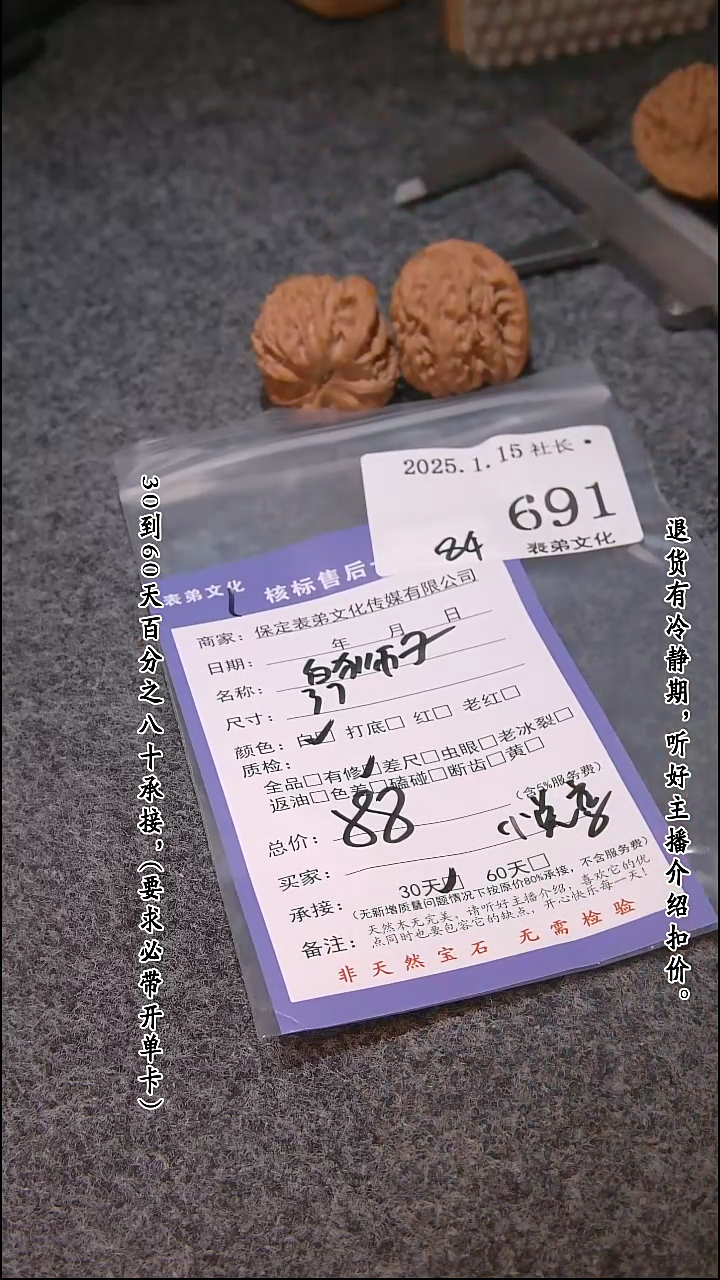 2025.1.15 社长
691
84
表弟文化
表弟文化 核标售后
商家：保定表弟文化传媒有限公司
日期： 年 月 日
名称：白狮子
尺寸：37
颜色：白□ 打底□ 红□ 老红□
质检：
全品□有修□差尺□虫眼□老冰裂□
返油□色差□磕碰□断齿□黄□
总价：88 （含5%服务费）
买家：
承接：30天□ 60天□
（无新增质量问题情况下按原价80%承接，不含服务费）
备注：天然木无完美，请听好主播介绍，喜欢它的优
点同时也要包容它的缺点，开心快乐每一天！
非天然宝石 无需检验
30到60天百分之八十承接，（要求必带开单卡）
退货有冷静期，听好主播介绍扣价。